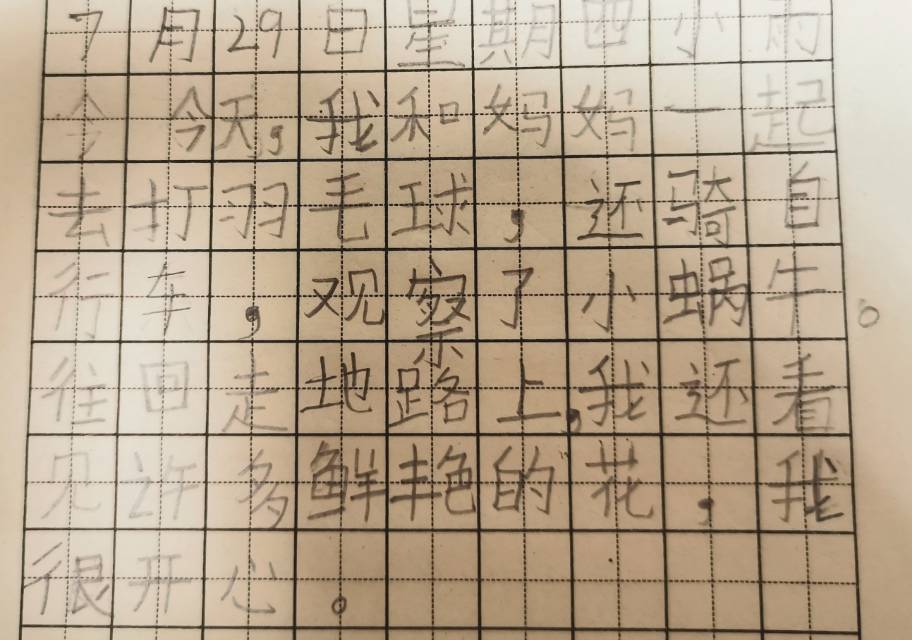 7月29日星期四小雨
今今天,我和妈妈一起
去打羽毛球,还骑自
行车,观察了小蜗牛。
往回走地路上,我还看
见许多鲜艳的花,我
很开心。